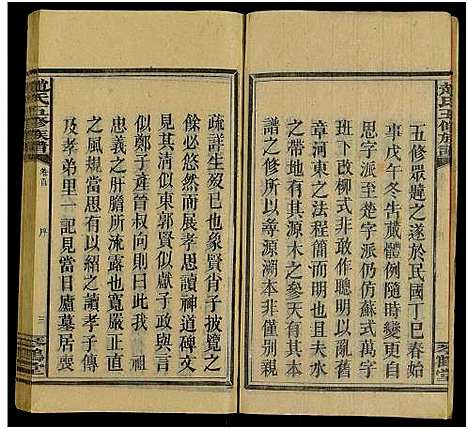 趙氏五修族譜
五修眾韙之遂於民國丁巳春始
事戊午冬告蕆體例隨時變更自
班下改柳式非敢作聰明以亂舊
章河東之法程簡而文明而不紊
也派字派至楚字派仍仿蘇式萬字
之有源木之有本其示人別矣是
譜之修所以尋源溯本非第別親
疏詳生歿已也象賢肖子披覽之
餘必悠然而展孝思讀神道碑文
見其清似東郭賢似獻子政與言
似鄭子產晉叔向則曰此我 祖
忠義之肝膽所流露也寬嚴正直
之風規當思有以紹之讀孝子傳
及孝弟里一記見當日廬墓居喪
趙氏五修族譜
卷首
序
三
琴鶴堂